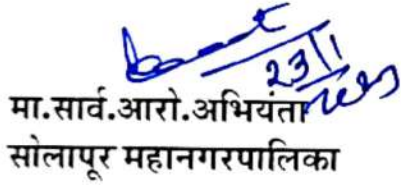 23/1
मा.सार्व.आरो.अभियंता
सोलापूर महानगरपालिका